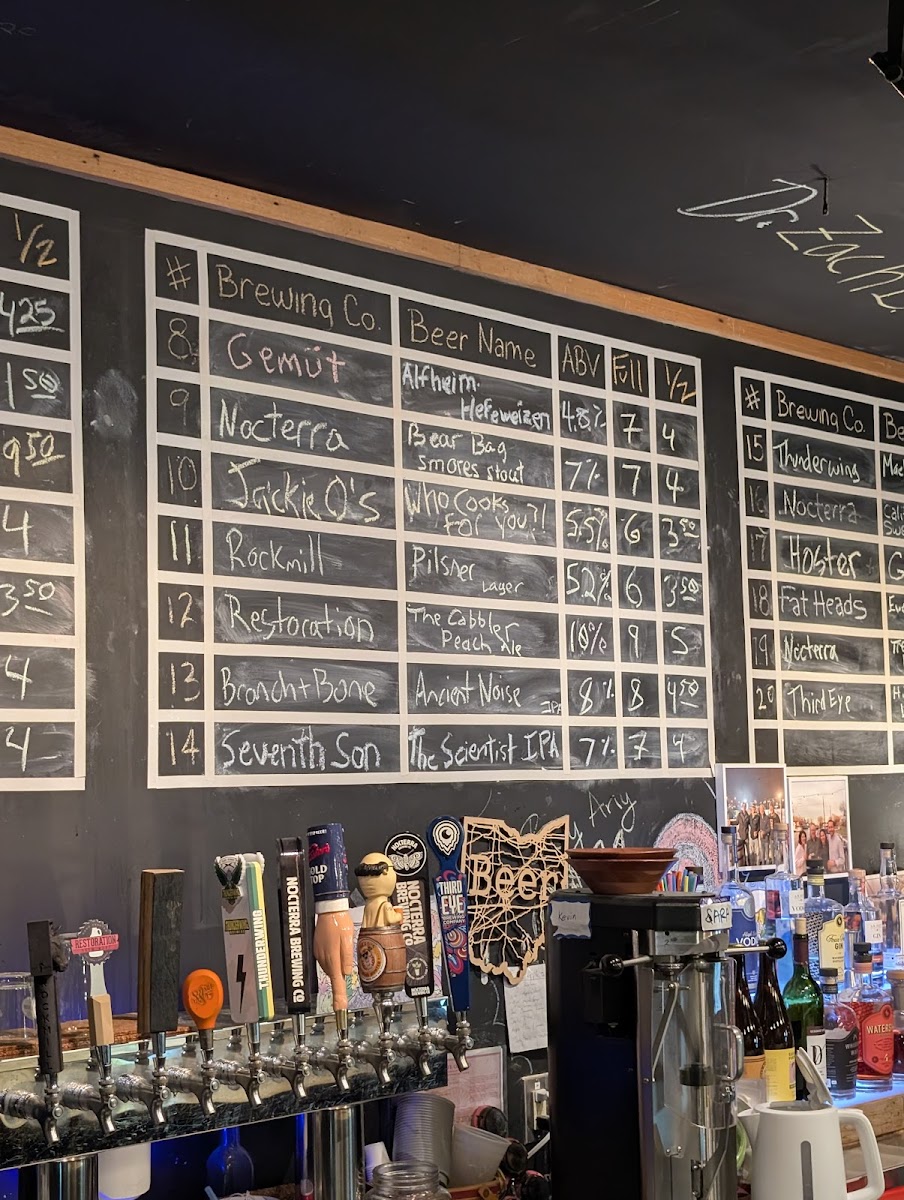 Dr. Zach
1/2
4 25
1 50
9 50
4
3 50
4
4
# Brewing Co. Beer Name ABV Full 1/2
8 Gemüt Alfheim Hefeweizen 4.8% 7 4
9 Nocterra Bear Bag Smores stout 7% 7 4
10 Jackie O's Who Cooks for you?! 5.5% 6 3 50
11 Rockmill Pilsner Lager 5.2% 6 3 50
12 Restoration The Cobbler Peach Ale 10% 9 5
13 Branch + Bone Ancient Noise IPA 8% 8 4 50
14 Seventh Son The Scientist IPA 7% 7 4
# Brewing Co. Be
15 Thunderwing Mac
16 Nocterra Cali
17 Hoster G
18 Fat Heads
19 Nocterra
20 Third Eye
Ariy
Beer
RESTORATION
THUNDERWING
NOCTERRA BREWING CO
OLD TOP
NOCTERRA
NOCTERRA BREWING CO
THIRD EYE
BREWING COMPANY
Kevin
SARA
VODK
GIN
WATERS
D